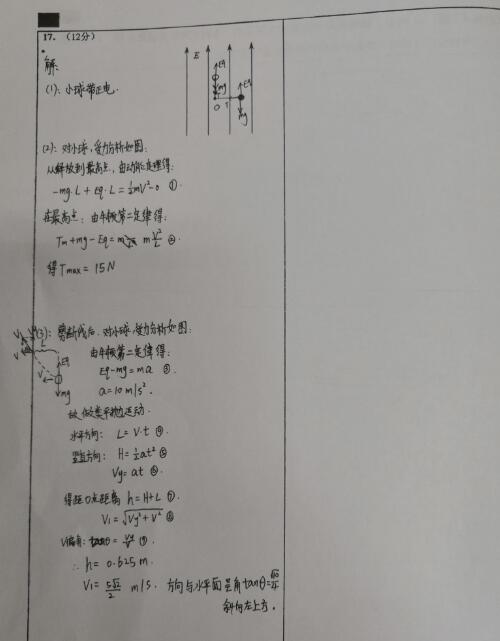 17. (12分)
解:
E
Eq
mg
O
T
Eq
mg
(1): 小球带正电.
(2): 对小球,受力分析如图:
从释放到最高点,由动能定理得:
-mg·L+Eq·L=½mV²-0 ①.
在最高点:由牛顿第二定律得:
Tm+mg-Eq=m V²/L ②.
得Tmax=15N
(3): 剪断线后,对小球,受力分析如图:
L
Eq
V
mg
由牛顿第二定律得:
Eq-mg=ma ③.
a=10m/s².
故,做类平抛运动.
水平方向: L=V·t ④.
竖直方向: H=½at² ⑤
Vy=at ⑥.
得距O点距离 h=H+L ⑦.
V₁=√(Vy²+V²) ⑧
V偏角: tanθ=Vy/V ⑨.
∴ h=0.625m.
V₁=5√2/2 m/s. 方向与水平面呈角tanθ=
斜向左上方.